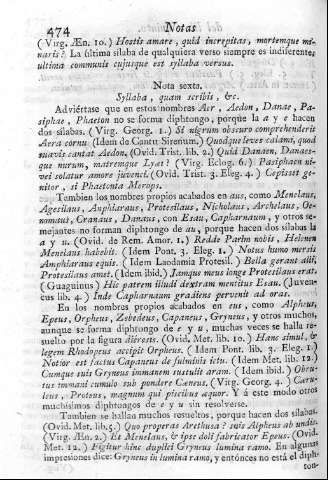 474 Notas
( Virg. Æn. 10. ) Hostis amare, quid increpitas, mortemque mi-
naris? La última sílaba de qualquiera verso siempre es indiferente,
ultima communis cujusque est syllaba versus.
Nota sexta.
Syllaba, quam scribis, &c.
Adviértase que en estos nombres Aer, Aedon, Danae, Pa-
siphae, Phaeton no se forma diphtongo, porque la a y e hacen
dos sílabas. ( Virg. Georg. 1. ) Si nigrum obscuro comprehenderit
Aera cornu (Idem de Cantu Sirenum.) Quodque leves calami, quod
suavis cantat Aedon. (Ovid. Trist. lib. 2.) Quid Danaen, Danaes-
que nurum, matremque Lyæi? ( Virg. Eclog. 6. ) Pasiphaen ni-
vei solatur amore juvenci. (Ovid. Trist. 3. Eleg. 4. ) Cepisset ge-
nitor, si Phaetonta Merops.
Tambien los nombres propios acabados en aus, como Menelaus,
Agesilaus, Amphiaraus, Protesilaus, Nicholaus, Archelaus, Ge-
nomaus, Cranaus, Danaus, con Esau, Capharnaum, y otros se-
mejantes no forman diphtongo de au, porque hacen dos sílabas la
a y u. (Ovid. de Rem. Amor. 1.) Redde Parim nobis, Helenen
Menelaus habebit. ( Idem Pont. 3. Eleg. 1. ) Notus humo mersis
Amphiaraus equis. ( Idem Laodamia Protesil. ) Bella gerant alii,
Protesilaus amet. (Idem ibid.) Jamque meus longe Protesilaus erat.
( Guaguinus ) Hic patrem illudi dextram mentitus Esau. (Juven-
cus lib. 4. ) Inde Capharnaum graditus pervenit ad oras.
En los nombres propios acabados en eus, como Alpheus,
Epeus, Orpheus, Zebedeus, Capaneus, Gryneus, y otros muchos,
aunque se forma diphtongo de e y u, muchas veces se halla re-
suelto por la figura diéresis. (Ovid. Met. lib. 10. ) Hanc simul, &
legem Rhodopeus accipit Orpheus. ( Idem Pont. lib. 3. Eleg. 1.)
Notior est factus Capaneus de fulminis ictu. ( Idem Met. lib. 12.)
Cumque suis Gryneus immanem sustulit aram. ( Idem ibid. ) Obru-
tus immani cumulo sub pondere Cæneus. ( Virg. Georg. 4. ) Cæru-
leus, Proteus, magnum qui piscibus æquor. Y á este modo otros
muchísimos diphtongos de e y u sin resolverse.
Tambien se hallan muchos resueltos, porque hacen dos sílabas.
(Ovid. Met. lib. 5.) Quo properas Arethusa? suis Alpheus ab undis.
( Virg. Æn. 2. ) Et Menelaus, & ipse doli fabricator Epeus. (Ovid.
Met. 12. ) Figitur hinc duplici Gryneus lumina ramo. En algunas
impresiones dice: Gryneus in lumina ramo, y entonces no está el diph-
ton-